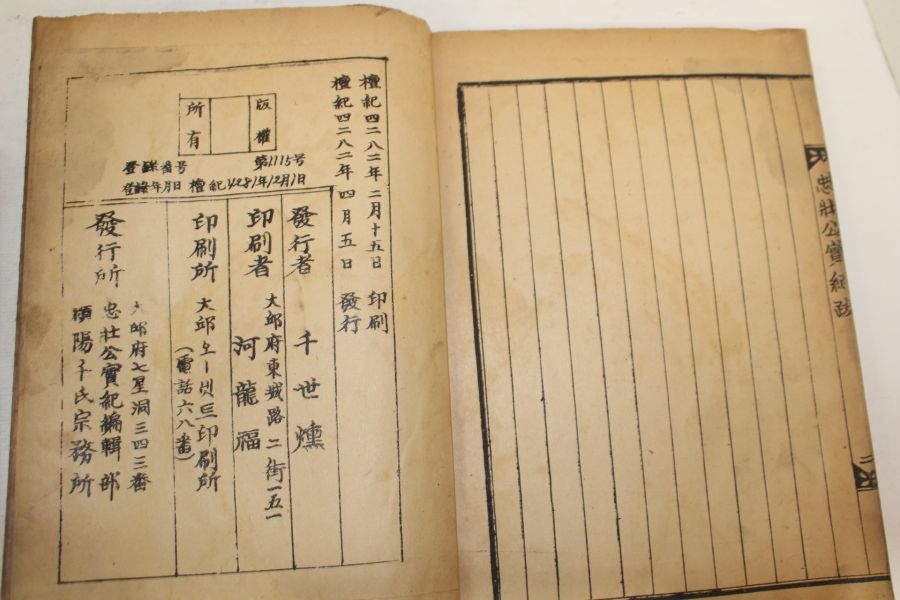 檀紀四二八二年二月十五日 印刷
檀紀四二八二年四月五日 發行
版權
所有
第1115号
登錄番号
登錄年月日 檀紀4281年12月1日
發行者 千世燻
大邱府東城路二街一五一
印刷者 河龍福
印刷所 大邱오ー삣트印刷所
(電話六八番)
發行所
大邱府七星洞三四三番
忠壯公實紀編輯部
潁陽千氏宗務所
忠壯公實紀跋
二